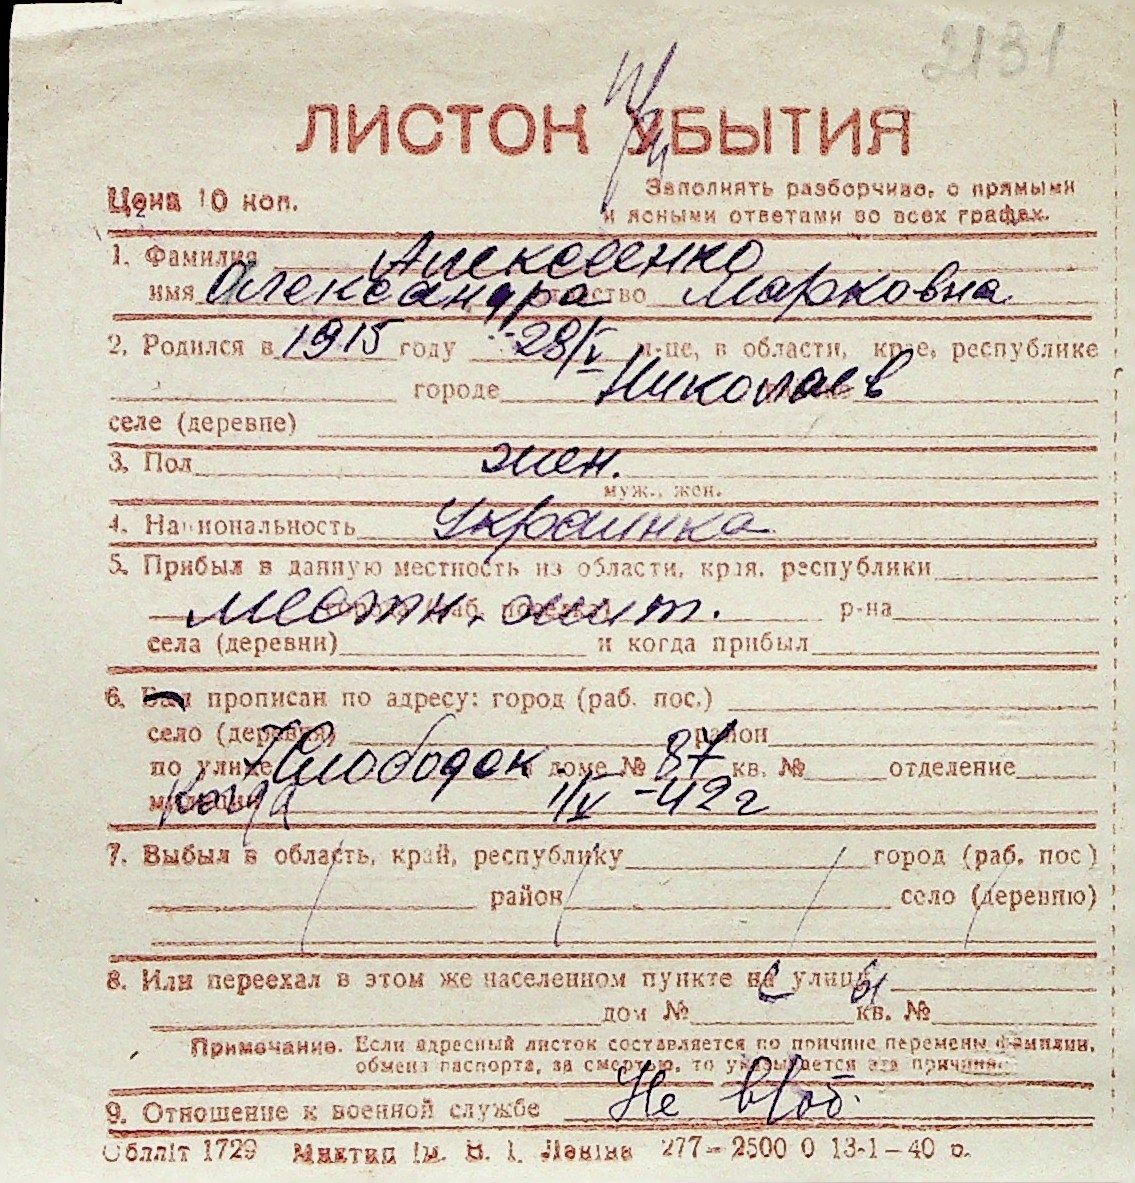 2131
ЛИСТОК УБЫТИЯ
Цена 10 коп.
Заполнять разборчиво, с прямыми
и ясными ответами во всех графах.
1. Фамилия Алексеенко
имя Александра отчество Марковна
2. Родился в 1915 году 28/V м-це, в области, крае, республике
городе Николаев
селе (деревне)
3. Пол жен.
муж., жен.
4. Национальность Украинка
5. Прибыл в данную местность из области, края, республики
местн. жит. р-на
села (деревни) и когда прибыл
6. Был прописан по адресу: город (раб. пос.)
село (деревня) район
по улице 7 Слободск в доме № 87 кв. № отделение
милиции Когда 1/V-42 г
7. Выбыл в область, край, республику город (раб. пос.)
район село (деревню)
8. Или переехал в этом же населенном пункте на улицу
дом № кв. №
Примечание. Если адресный листок составляется по причине перемены фамилии,
обмена паспорта, за смертью, то указывается эта причина.
9. Отношение к военной службе Не в/об.
Облліт 1729 Миктип Ім. В. І. Леніна 277-2500 0 13-1-40 р.